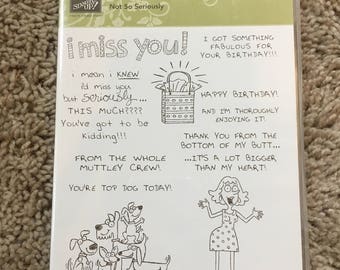 STAMPIN' UP!
Not So Seriously
i miss you!
i mean i KNEW
i'd miss you
but seriously...
THIS MUCH????
You've got to be
kidding!!!
I GOT SOMETHING
FABULOUS FOR
YOUR BIRTHDAY!!!
HAPPY BIRTHDAY!
AND I'M THOROUGHLY
ENJOYING IT!
THANK YOU FROM THE
BOTTOM OF MY BUTT...
...IT'S A LOT BIGGER
THAN MY HEART!
FROM THE WHOLE
MUTTLEY CREW!
YOU'RE TOP DOG TODAY!